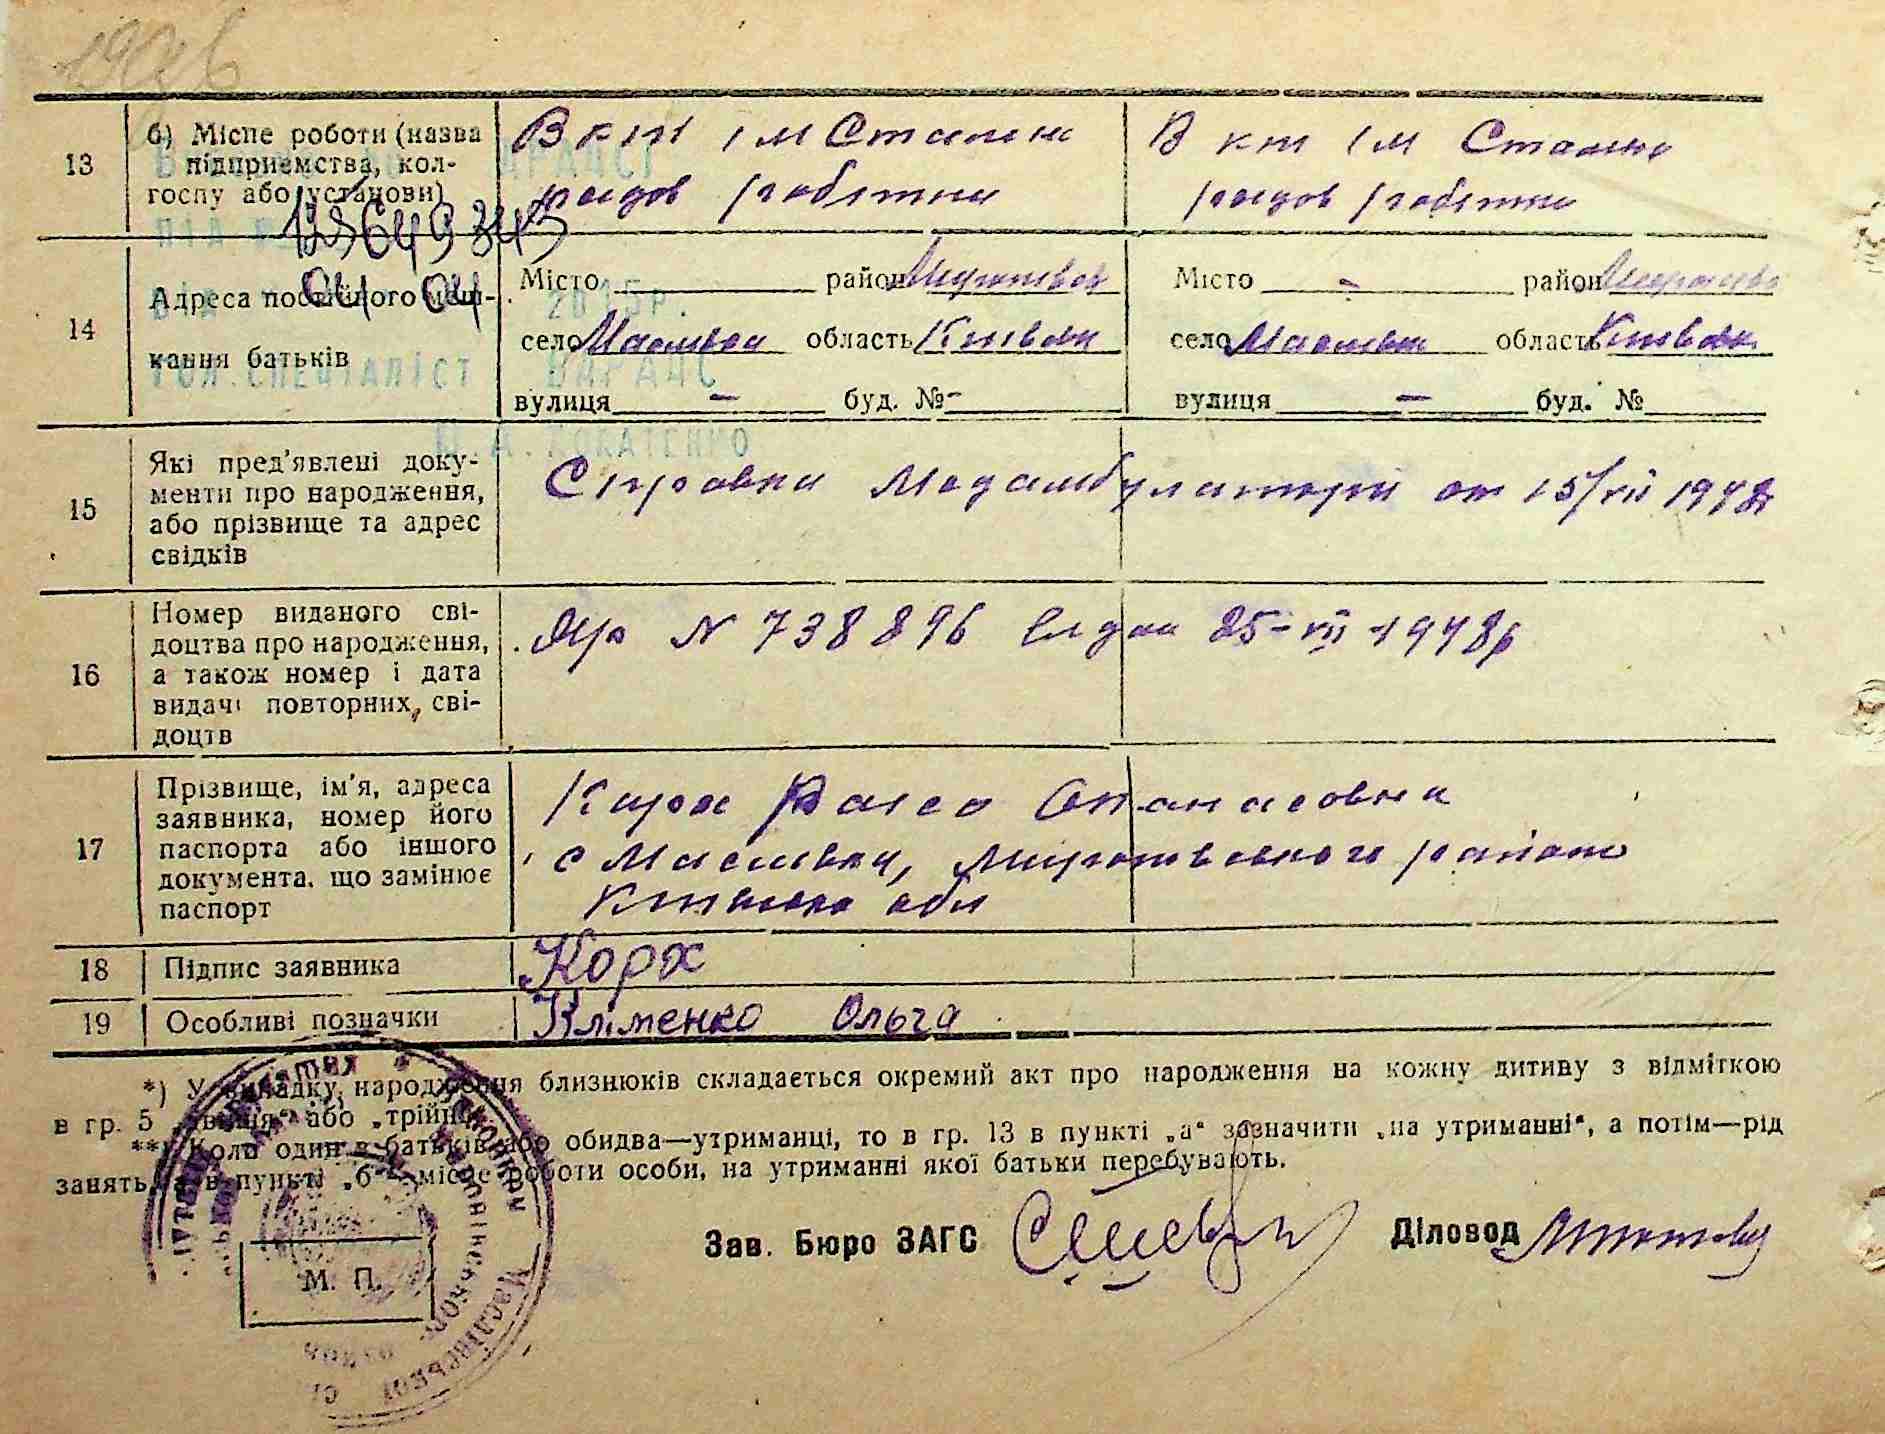 1996
13
б) Місце роботи (назва
підприємства, кол-
госпу або установи)
В к-ті ім Сталіна
рядов робітни
В кт ім Сталіна
рядов робітни
14
Адреса постійного меш-
кання батьків
Місто район Миронівськ
село Маслівка область Київськ
вулиця - буд. № -
Місто - район Миронівськ
село Маслівка область Київськ
вулиця - буд. №
2015р.
ГОЛ.СПЕЦІАЛІСТ ВДРАЦС
15
Які пред'явлені доку-
менти про народження,
або прізвище та адрес
свідків
Справка Медамбулаторії от 15/VII 1948
16
Номер виданого сві-
доцтва про народження,
а також номер і дата
видачі повторних, сві-
доцтв
N 738896 видан 25-VII-1948р
17
Прізвище, ім'я, адреса
заявника, номер його
паспорта або іншого
документа, що замінює
паспорт
Корх Раїса Опанасовна
с Маслівки, Миронівського району
Київсько обл
18
Підпис заявника
Корх
19
Особливі позначки
Кліменко Ольга
*) У випадку народження близнюків складається окремий акт про народження на кожну дитину з відміткою
в гр. 5 „двійня“ або „трійня“.
**) Коли один з батьків або обидва—утриманці, то в гр. 13 в пункті „а“ зазначити „на утриманні“, а потім—рід
занять, а в пункті „б“—місце роботи особи, на утриманні якої батьки перебувають.
Зав. Бюро ЗАГС
Діловод
М. П.